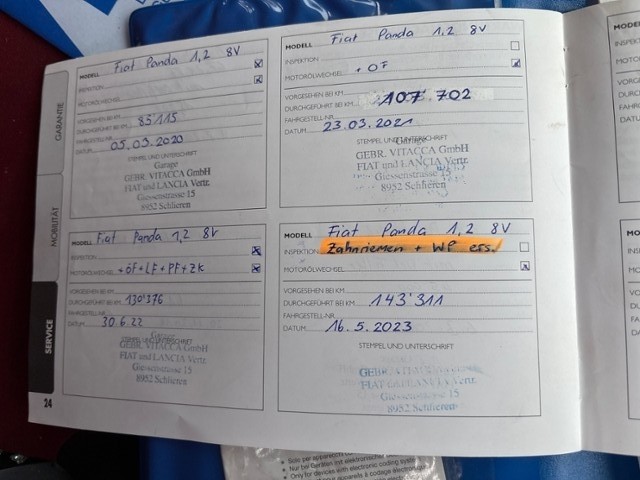 GARANTIE
MOBILITÄT
SERVICE
24
MODELL Fiat Panda 1,2 8V
INSPEKTION
MOTORÖLWECHSEL
VORGESEHEN BEI KM
DURCHGEFÜHRT BEI KM 85115
FAHRGESTELL-NR.
DATUM 05.03.2020
STEMPEL UND UNTERSCHRIFT
Garage
GEBR. VITACCA GmbH
FIAT und LANCIA Vertr.
Giessenstrasse 15
8952 Schlieren
MODELL Fiat Panda 1,2 8V
INSPEKTION
MOTORÖLWECHSEL + ÖF
VORGESEHEN BEI KM
DURCHGEFÜHRT BEI KM 107 702
FAHRGESTELL-NR.
DATUM 23.03.2021
STEMPEL UND UNTERSCHRIFT
Garage
GEBR. VITACCA GmbH
FIAT und LANCIA Vertr.
Giessenstrasse 15
8952 Schlieren
MODELL Fiat Panda 1,2 8V
INSPEKTION
MOTORÖLWECHSEL +ÖF+LF+PF+ZK
VORGESEHEN BEI KM
DURCHGEFÜHRT BEI KM 130'376
FAHRGESTELL-NR.
DATUM 30.6.22
Garage
STEMPEL UND UNTERSCHRIFT
GEBR. VITACCA GmbH
FIAT und LANCIA Vertr.
Giessenstrasse 15
8952 Schlieren
MODELL Fiat Panda 1,2 8V
INSPEKTION Zahnriemen + WP ers.
MOTORÖLWECHSEL
VORGESEHEN BEI KM
DURCHGEFÜHRT BEI KM 143'311
FAHRGESTELL-NR.
DATUM 16.5.2023
STEMPEL UND UNTERSCHRIFT
GEBR. VITACCA GmbH
FIAT und LANCIA Vertr.
Giessenstrasse 15
8952 Schlieren
• Nur bei Geräten mit elektronischer
• Only for devices with electronic coding system